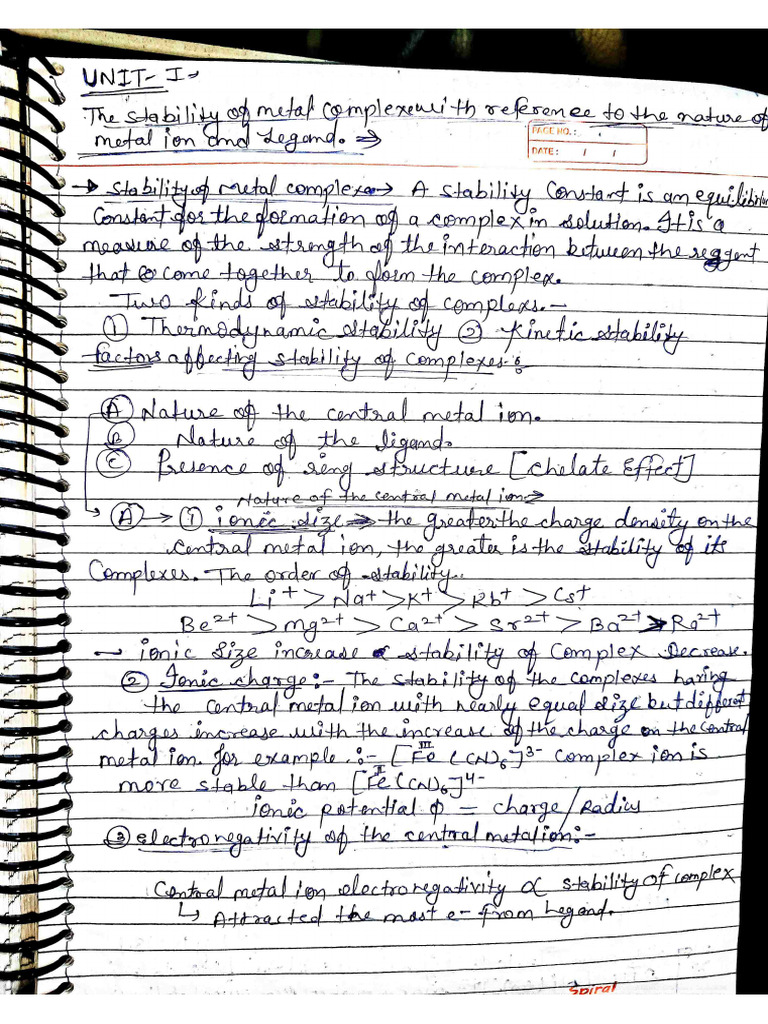 UNIT-I→
The stability of metal complexe with reference to the nature of
metal ion and Legand. ⇒
PAGE NO.:
DATE: / /
→ Stability of metal complex → A stability Constant is an equilibrium
Constant for the formation of a complex in solution. It is a
measure of the strength of the interaction between the reagent
that come together to form the complex.
Two kinds of stability of complexs.-
① Thermodynamic stability ② Kinetic stability
factors affecting stability of complexes:
Ⓐ Nature of the central metal ion.
Ⓑ Nature of the ligand.
Ⓒ Presence of ring structure [chelate Effect]
Nature of the central metal ion→
Ⓐ → ① ionic size → the greater the charge density on the
central metal ion, the greater is the stability of its
Complexes. The order of stability..
Li⁺ > Na⁺ > K⁺ > Rb⁺ > Cs⁺
Be²⁺ > Mg²⁺ > Ca²⁺ > Sr²⁺ > Ba²⁺ > Ra²⁺
→ ionic size increase stability of Complex Decrease.
② Ionic charge:- The stability of the complexes having
the central metal ion with nearly equal size but different
charges increase with the increase of the charge on the central
metal ion. for example :- [Feᴵᴵᴵ(CN)₆]³⁻ complex ion is
more stable than [Feᴵᴵ(CN)₆]⁴⁻
ionic potential ϕ = charge/Radius
③ electronegativity of the central metal ion:-
Central metal ion electronegativity ∝ stability of complex
↳ Attracted the most e- from Legand.
Spiral